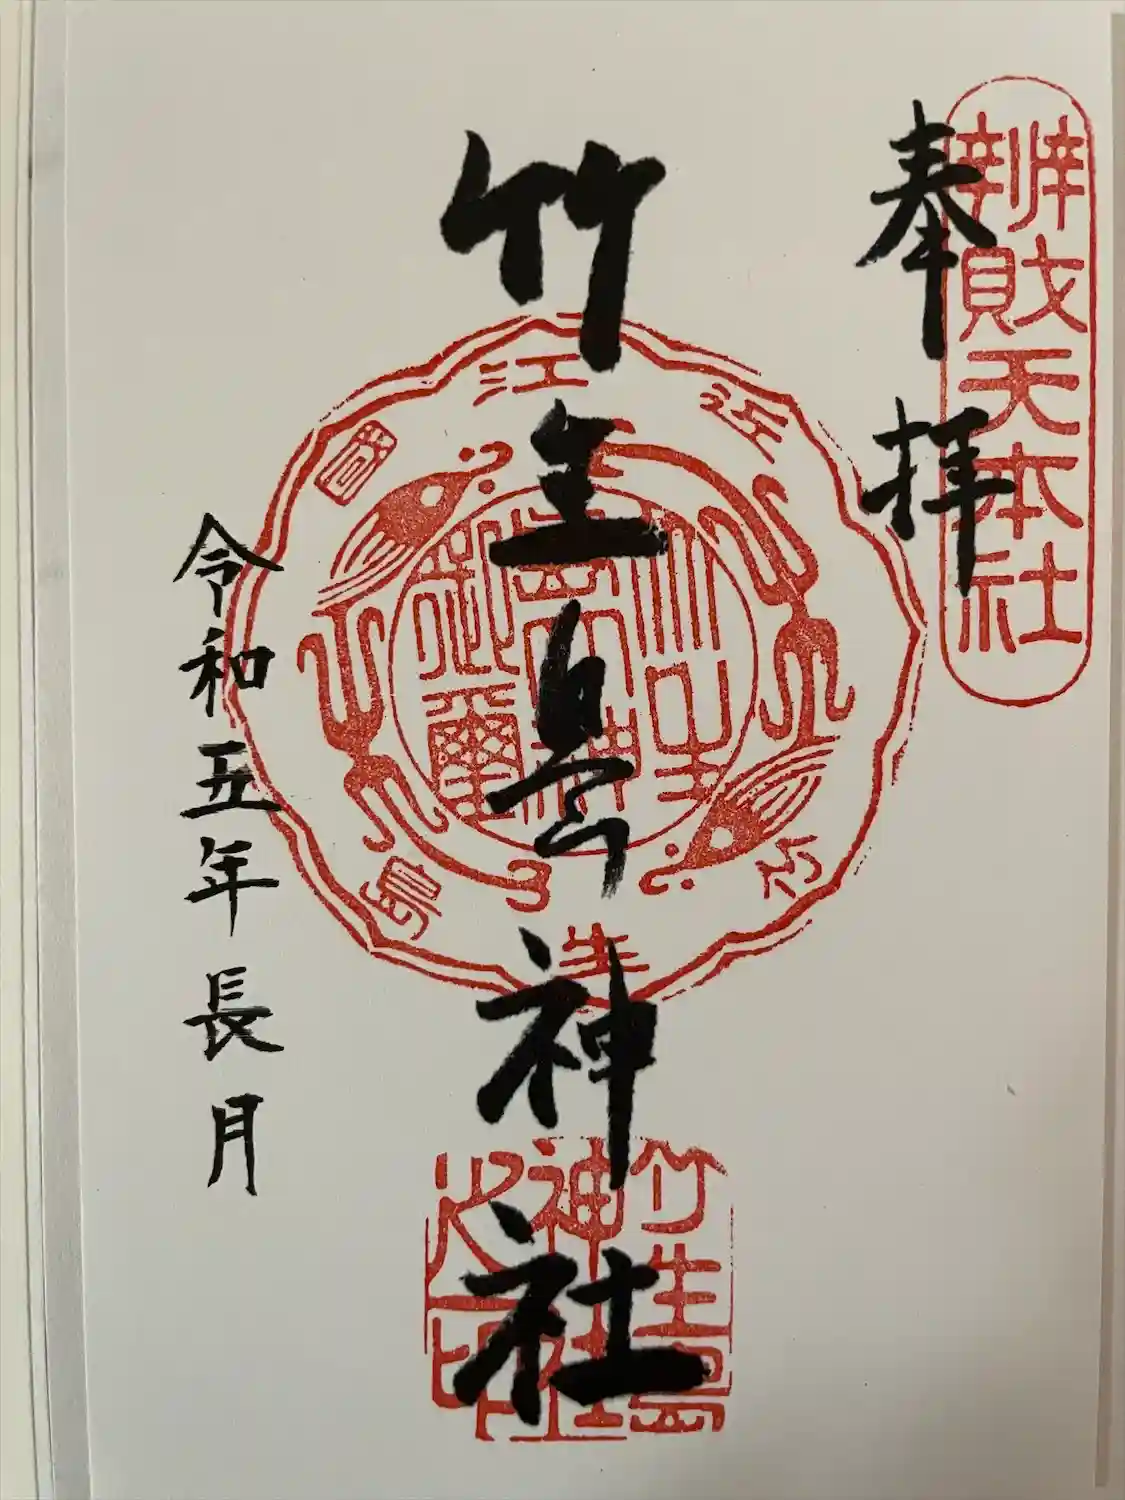 奉拝
辨財天本社
竹生島神社
近江
竹生島
竹生島神社之印
令和五年長月